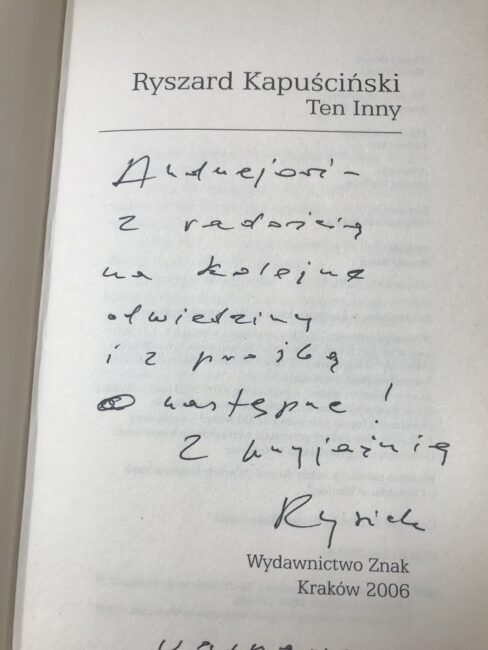 Ryszard Kapuściński
Ten Inny
Andrzejowi –
z radością
na kolejne
odwiedziny
i z prośbą
o następne!
Z przyjaźnią
Rysiek
Wydawnictwo Znak
Kraków 2006